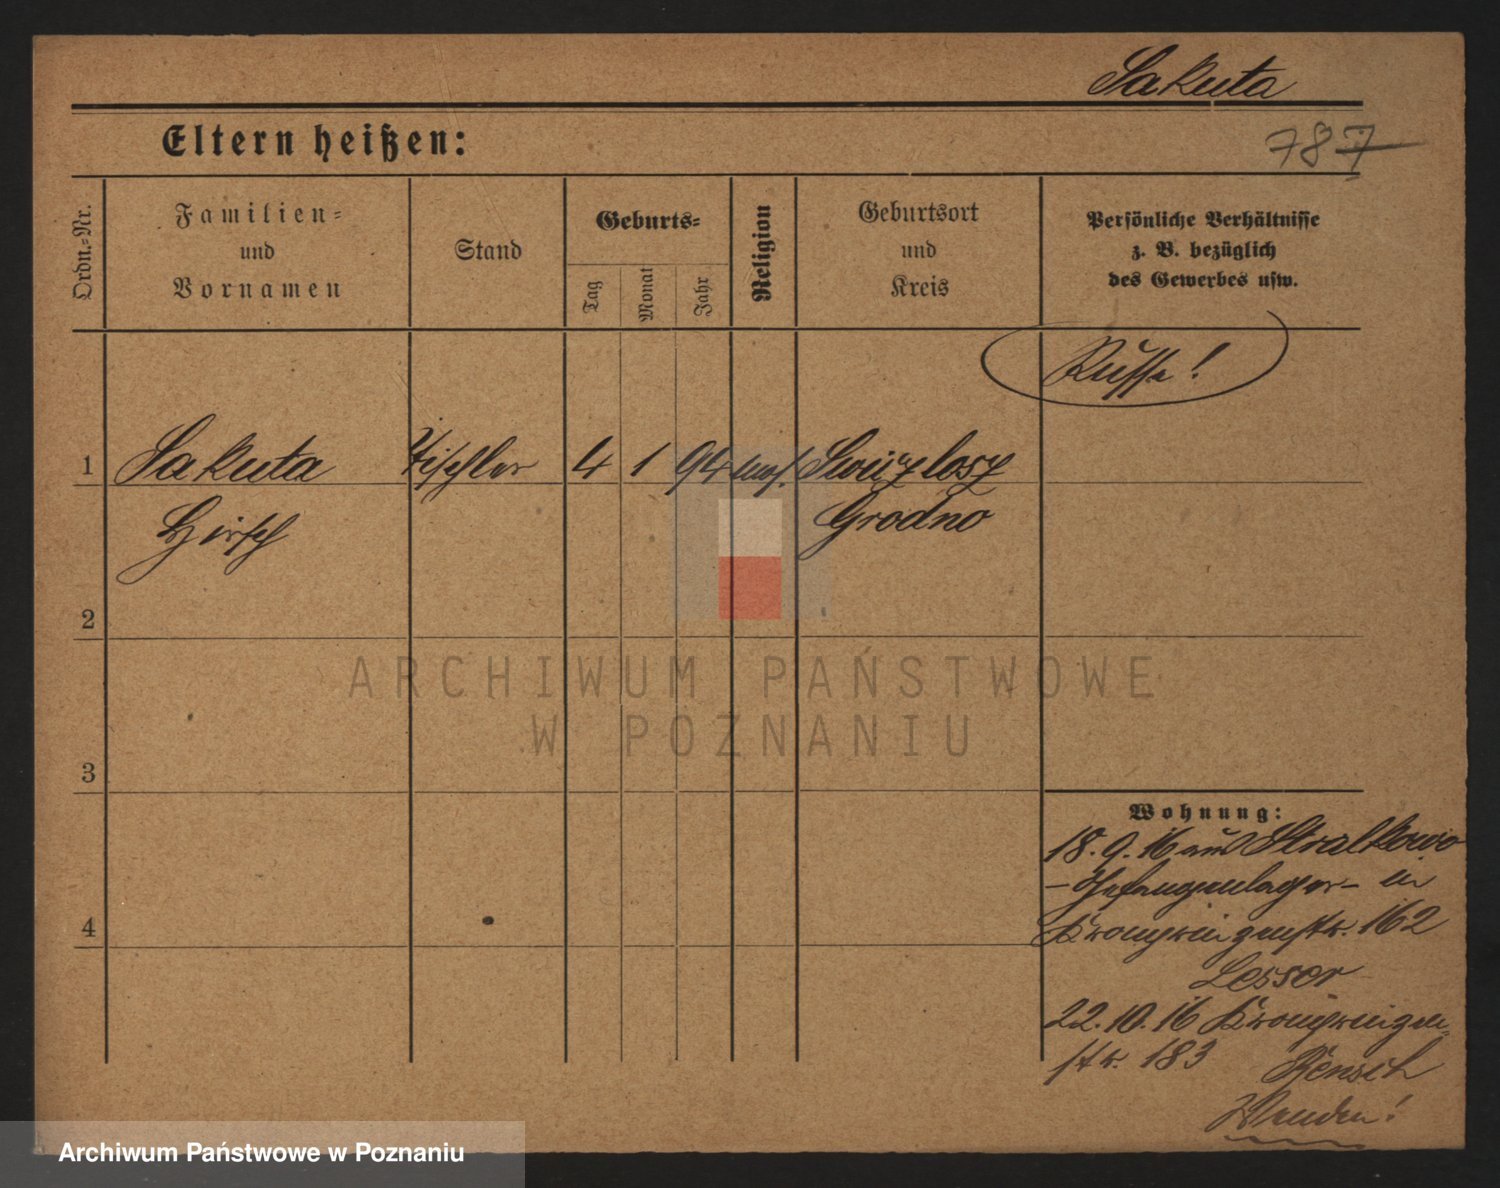 Sakuta
Eltern heißen:
787
Ordn.-Nr.
Familien-
und
Vornamen
Stand
Geburts-
Tag
Monat
Jahr
Religion
Geburtsort
und
Kreis
Persönliche Verhältnisse
z. B. bezüglich
des Gewerbes usw.
Russe!
1
Sakuta
Tischler
4
1
94
mos.
Hirsch
Grodno
2
ARCHIWUM PAŃSTWOWE
W POZNANIU
3
Wohnung:
18.9.16 aus Stralkowo
- Gefangenlager - in
4
Kronprinzenstr. 162
Lesser
22.10.16 Kronprinzen-
str. 183
Rensch
Wenden!
Archiwum Państwowe w Poznaniu